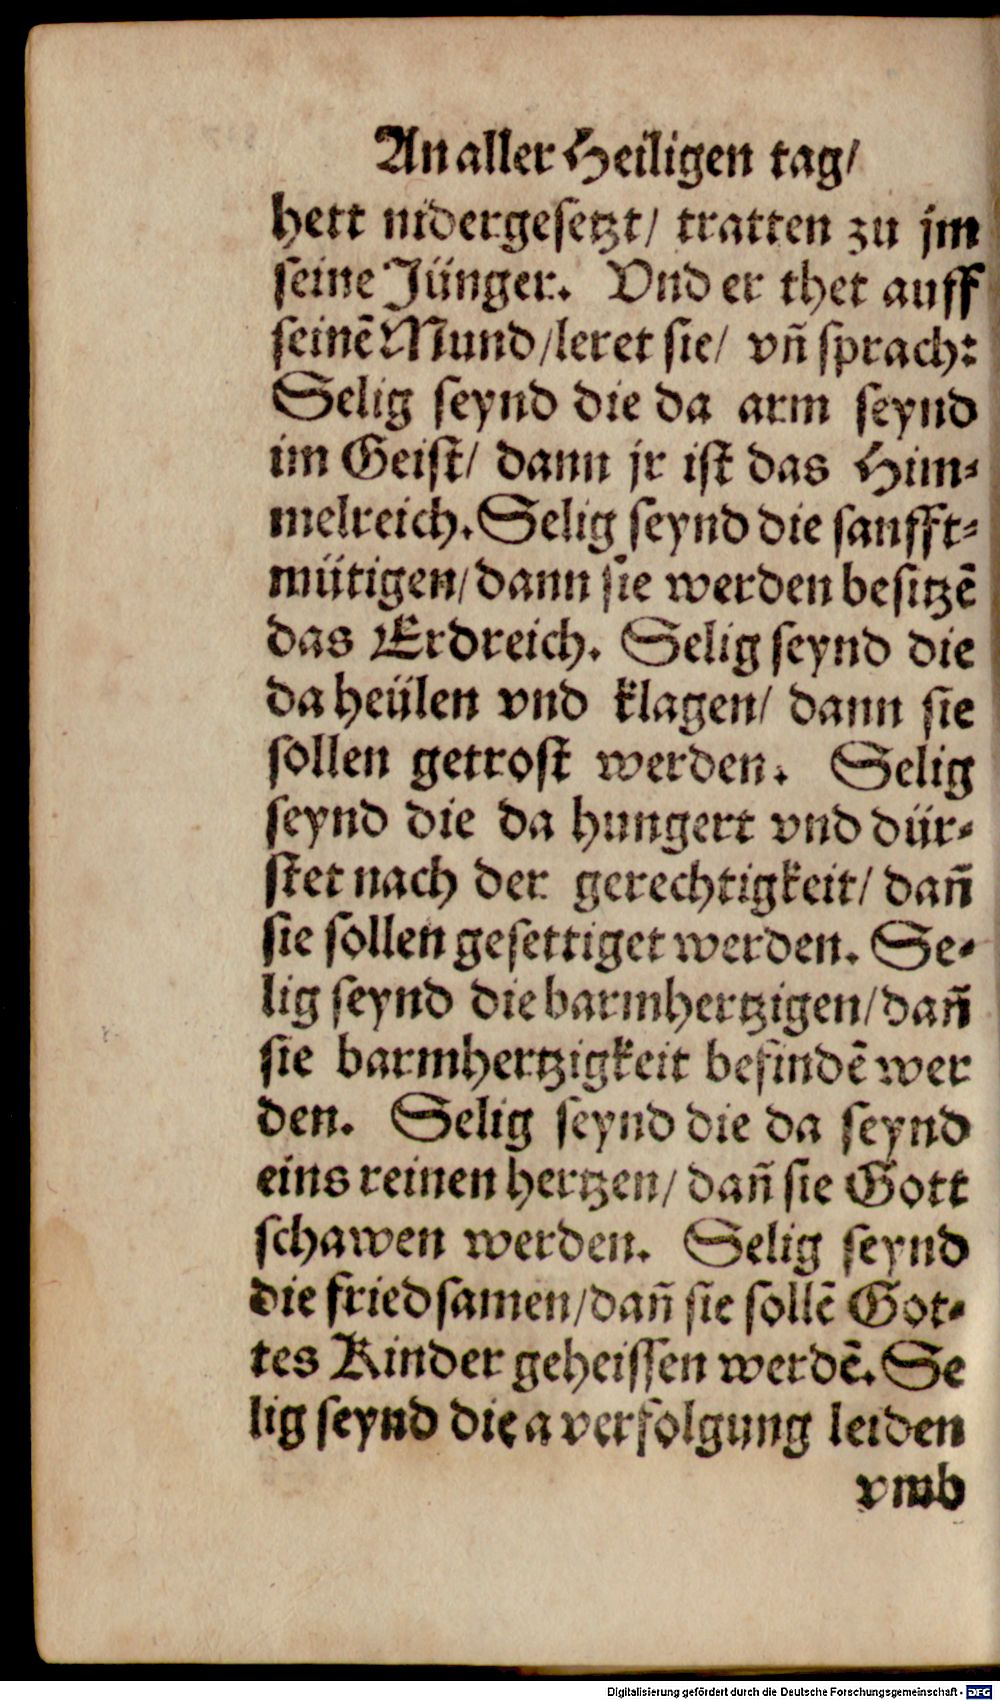 An aller Heiligen tag/
hett nidergesetzt/ tratten zu jm
seine Jünger. Vnd er thet auff
seinẽ Mund/leret sie/ vñ sprach:
Selig seynd die da arm seynd
im Geist/ dann jr ist das Him-
melreich. Selig seynd die sanfft-
mütigen/dann sie werden besitzẽ
das Erdreich. Selig seynd die
da heülen vnd klagen/ dann sie
sollen getrost werden. Selig
seynd die da hungert vnd dür-
stet nach der gerechtigkeit/ dañ
sie sollen gesettiget werden. Se-
lig seynd die barmhertzigen/dañ
sie barmhertzigkeit befindẽ wer
den. Selig seynd die da seynd
eins reinen hertzen/ dañ sie Gott
schawen werden. Selig seynd
die friedsamen/dañ sie sollẽ Got-
tes Kinder geheissen werdẽ. Se
lig seynd die a verfolgung leiden
vmb
Digitalisierung gefördert durch die Deutsche Forschungsgemeinschaft - DFG